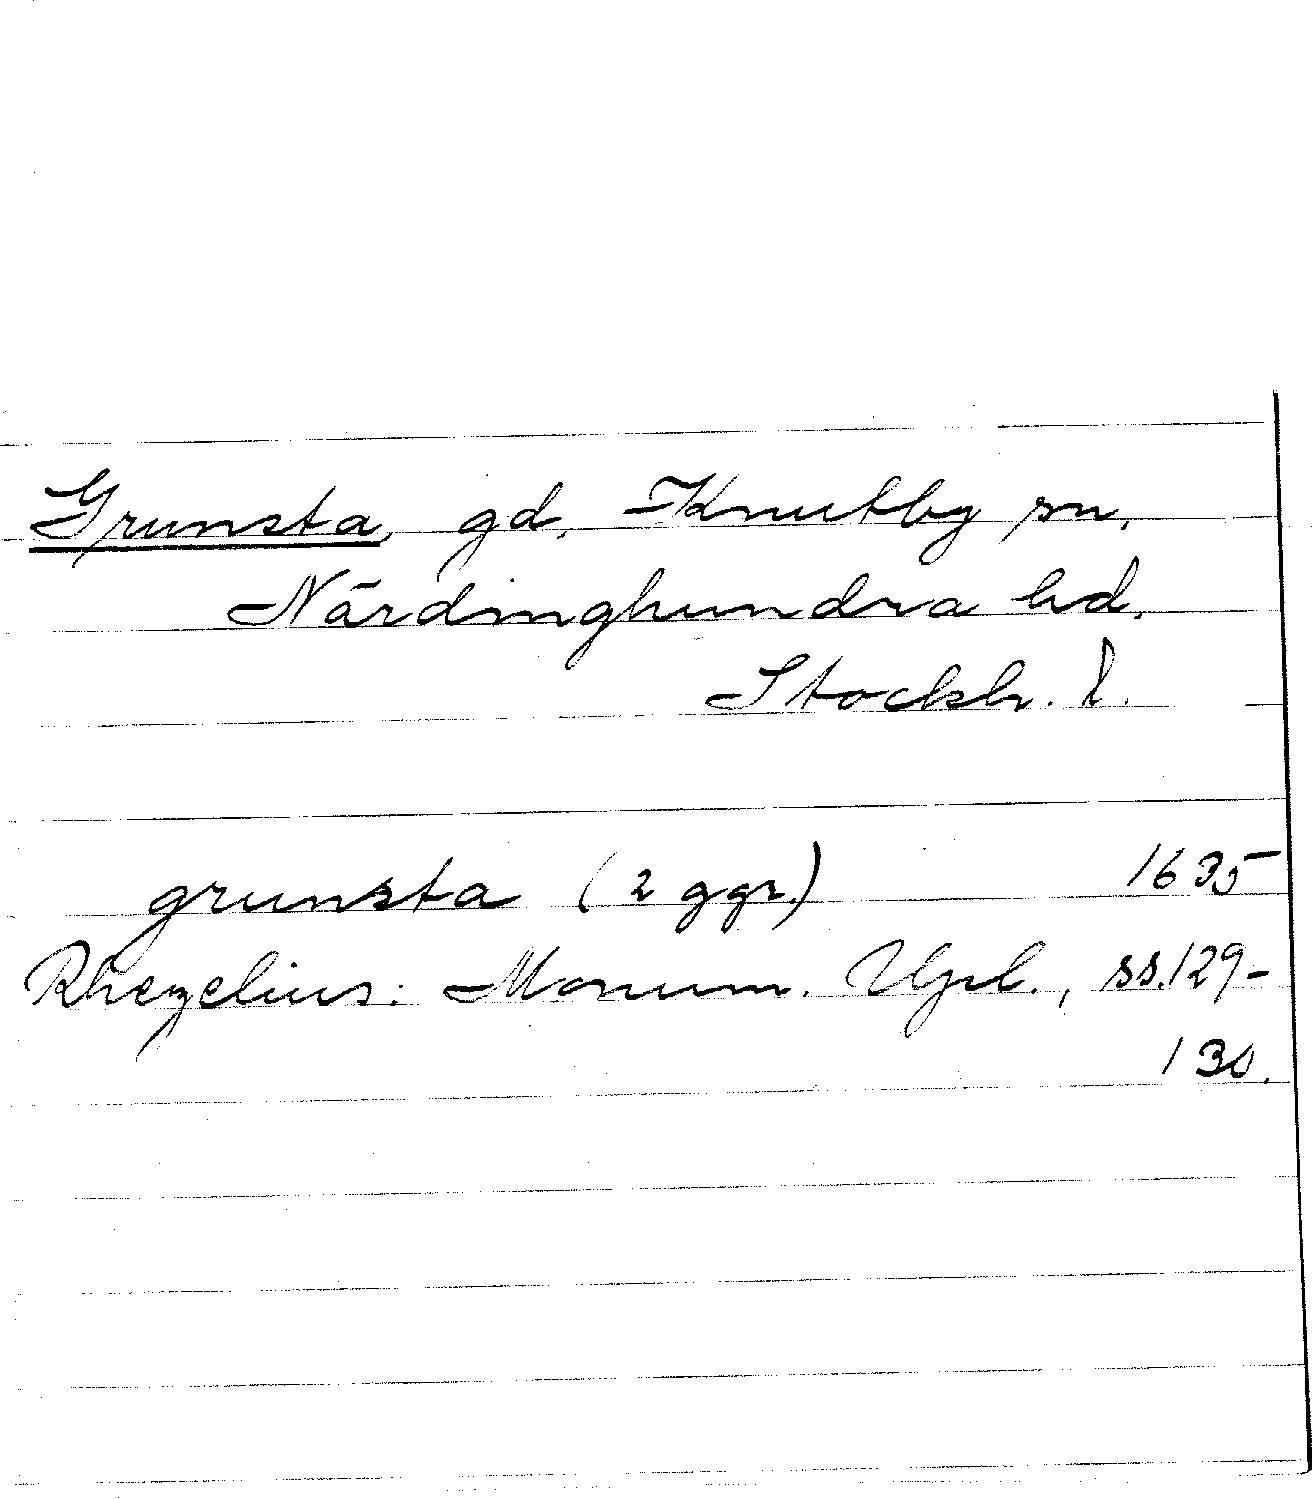 Grunsta, gd, Knutby sn,
Närdinghundra hd,
Stockh. l.
grunsta (2 ggr.) 1635
Rhezelius: Monum. Upl., ss.129-
130.